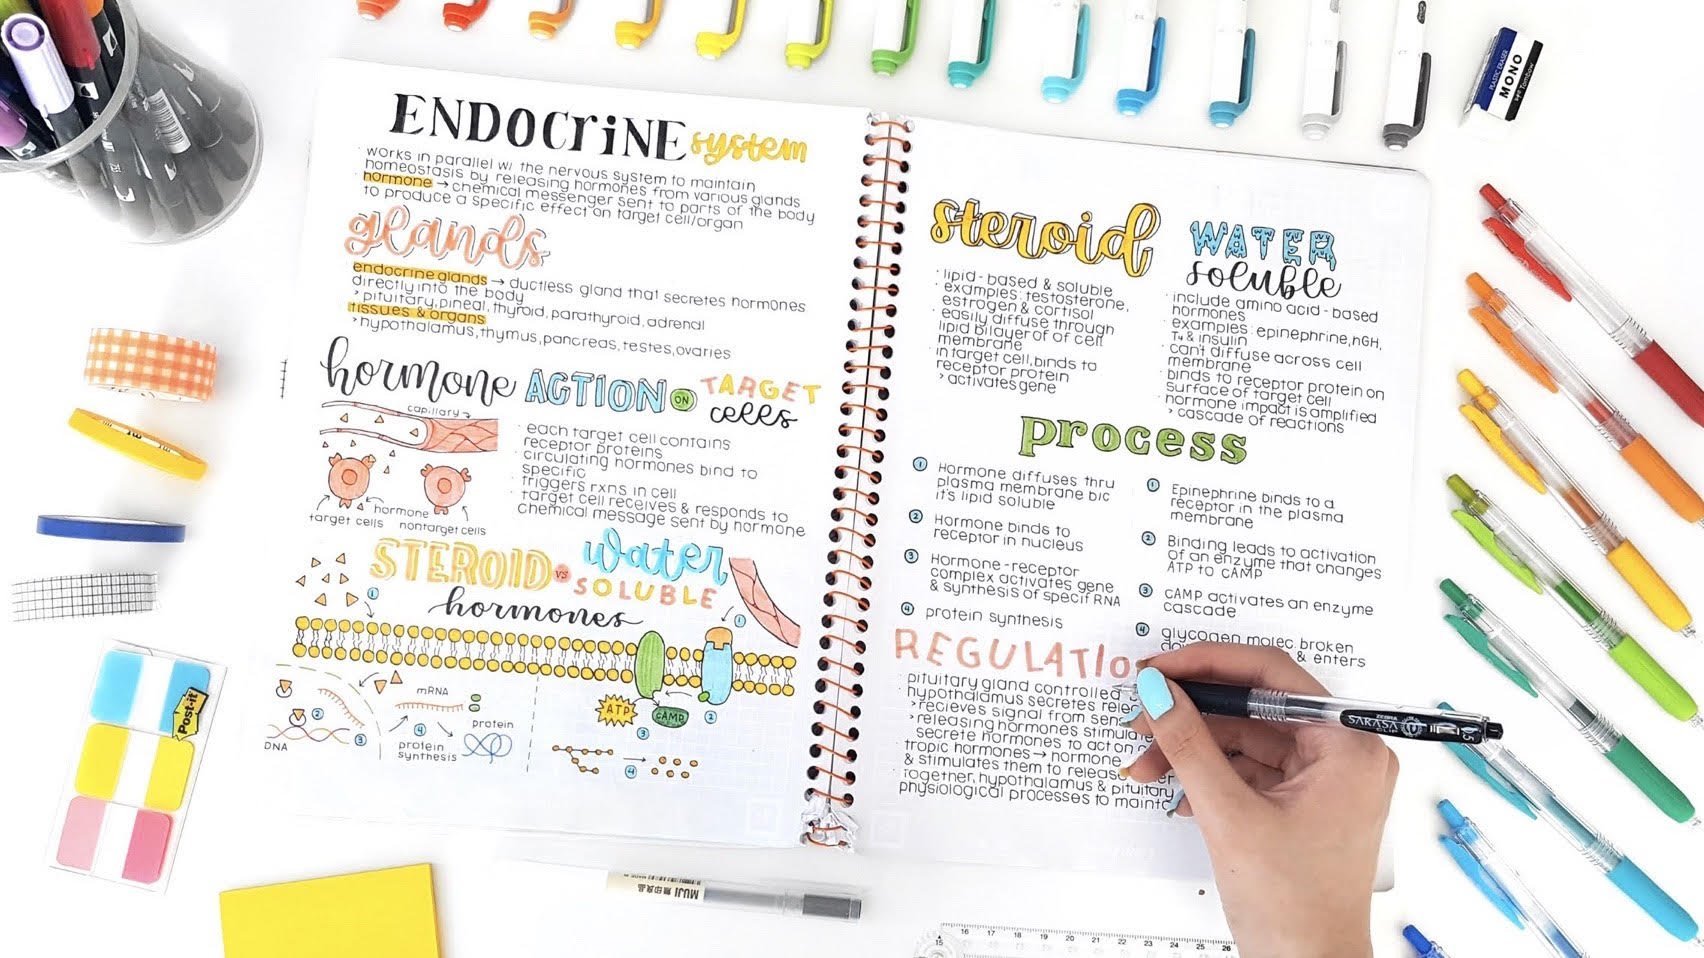 ENDOCRINE system
· works in parallel w/ the nervous system to maintain
homeostasis by releasing hormones from various glands
· hormone → chemical messenger sent to parts of the body
to produce a specific effect on target cell/organ
glands
endocrine glands → ductless gland that secretes hormones
directly into the body
> pituitary, pineal, thyroid, parathyroid, adrenal
tissues & organs
> hypothalamus, thymus, pancreas, testes, ovaries
hormone ACTION ON TARGET
cells
capillary
hormone
target cells
nontarget cells
· each target cell contains
receptor proteins
· circulating hormones bind to
specific
· triggers rxns in cell
· target cell receives & responds to
chemical message sent by hormone
STEROID vs water
SOLUBLE
hormones
1
1
mRNA
2
DNA
3
4
protein
synthesis
protein
ATP
CAMP
2
3
4
steroid
· lipid-based & soluble
· examples: testosterone,
estrogen & cortisol
· easily diffuse through
lipid bilayer of of cell
membrane
· in target cell, binds to
receptor protein
> activates gene
WATER
soluble
· include amino acid-based
hormones
· examples: epinephrine, hGH,
T4 & insulin
· can't diffuse across cell
membrane
· binds to receptor protein on
surface of target cell
· hormone impact is amplified
> cascade of reactions
process
1 Hormone diffuses thru
plasma membrane b/c
it's lipid soluble
2 Hormone binds to
receptor in nucleus
3 Hormone-receptor
complex activates gene
& synthesis of specif RNA
4 protein synthesis
1 Epinephrine binds to a
receptor in the plasma
membrane
2 Binding leads to activation
of an enzyme that changes
ATP to cAMP
3 CAMP activates an enzyme
cascade
4 glycogen molec. broken
& enters
REGULATIO
· pituitary gland controlled
· hypothalamus secretes
> recieves signal from
> releasing hormones
secrete hormones to act on
· tropic hormones → hormone
& stimulates them to release
· together, hypothalamus & pituitary
physiological processes to
MONO
PLASTIC ERASER
Tombow
Post-it
MUJI 無印良品
ZEBRA
SARASA
CLIP
0.5
15 16 17 18 19 20 21 22 23 24 25 26